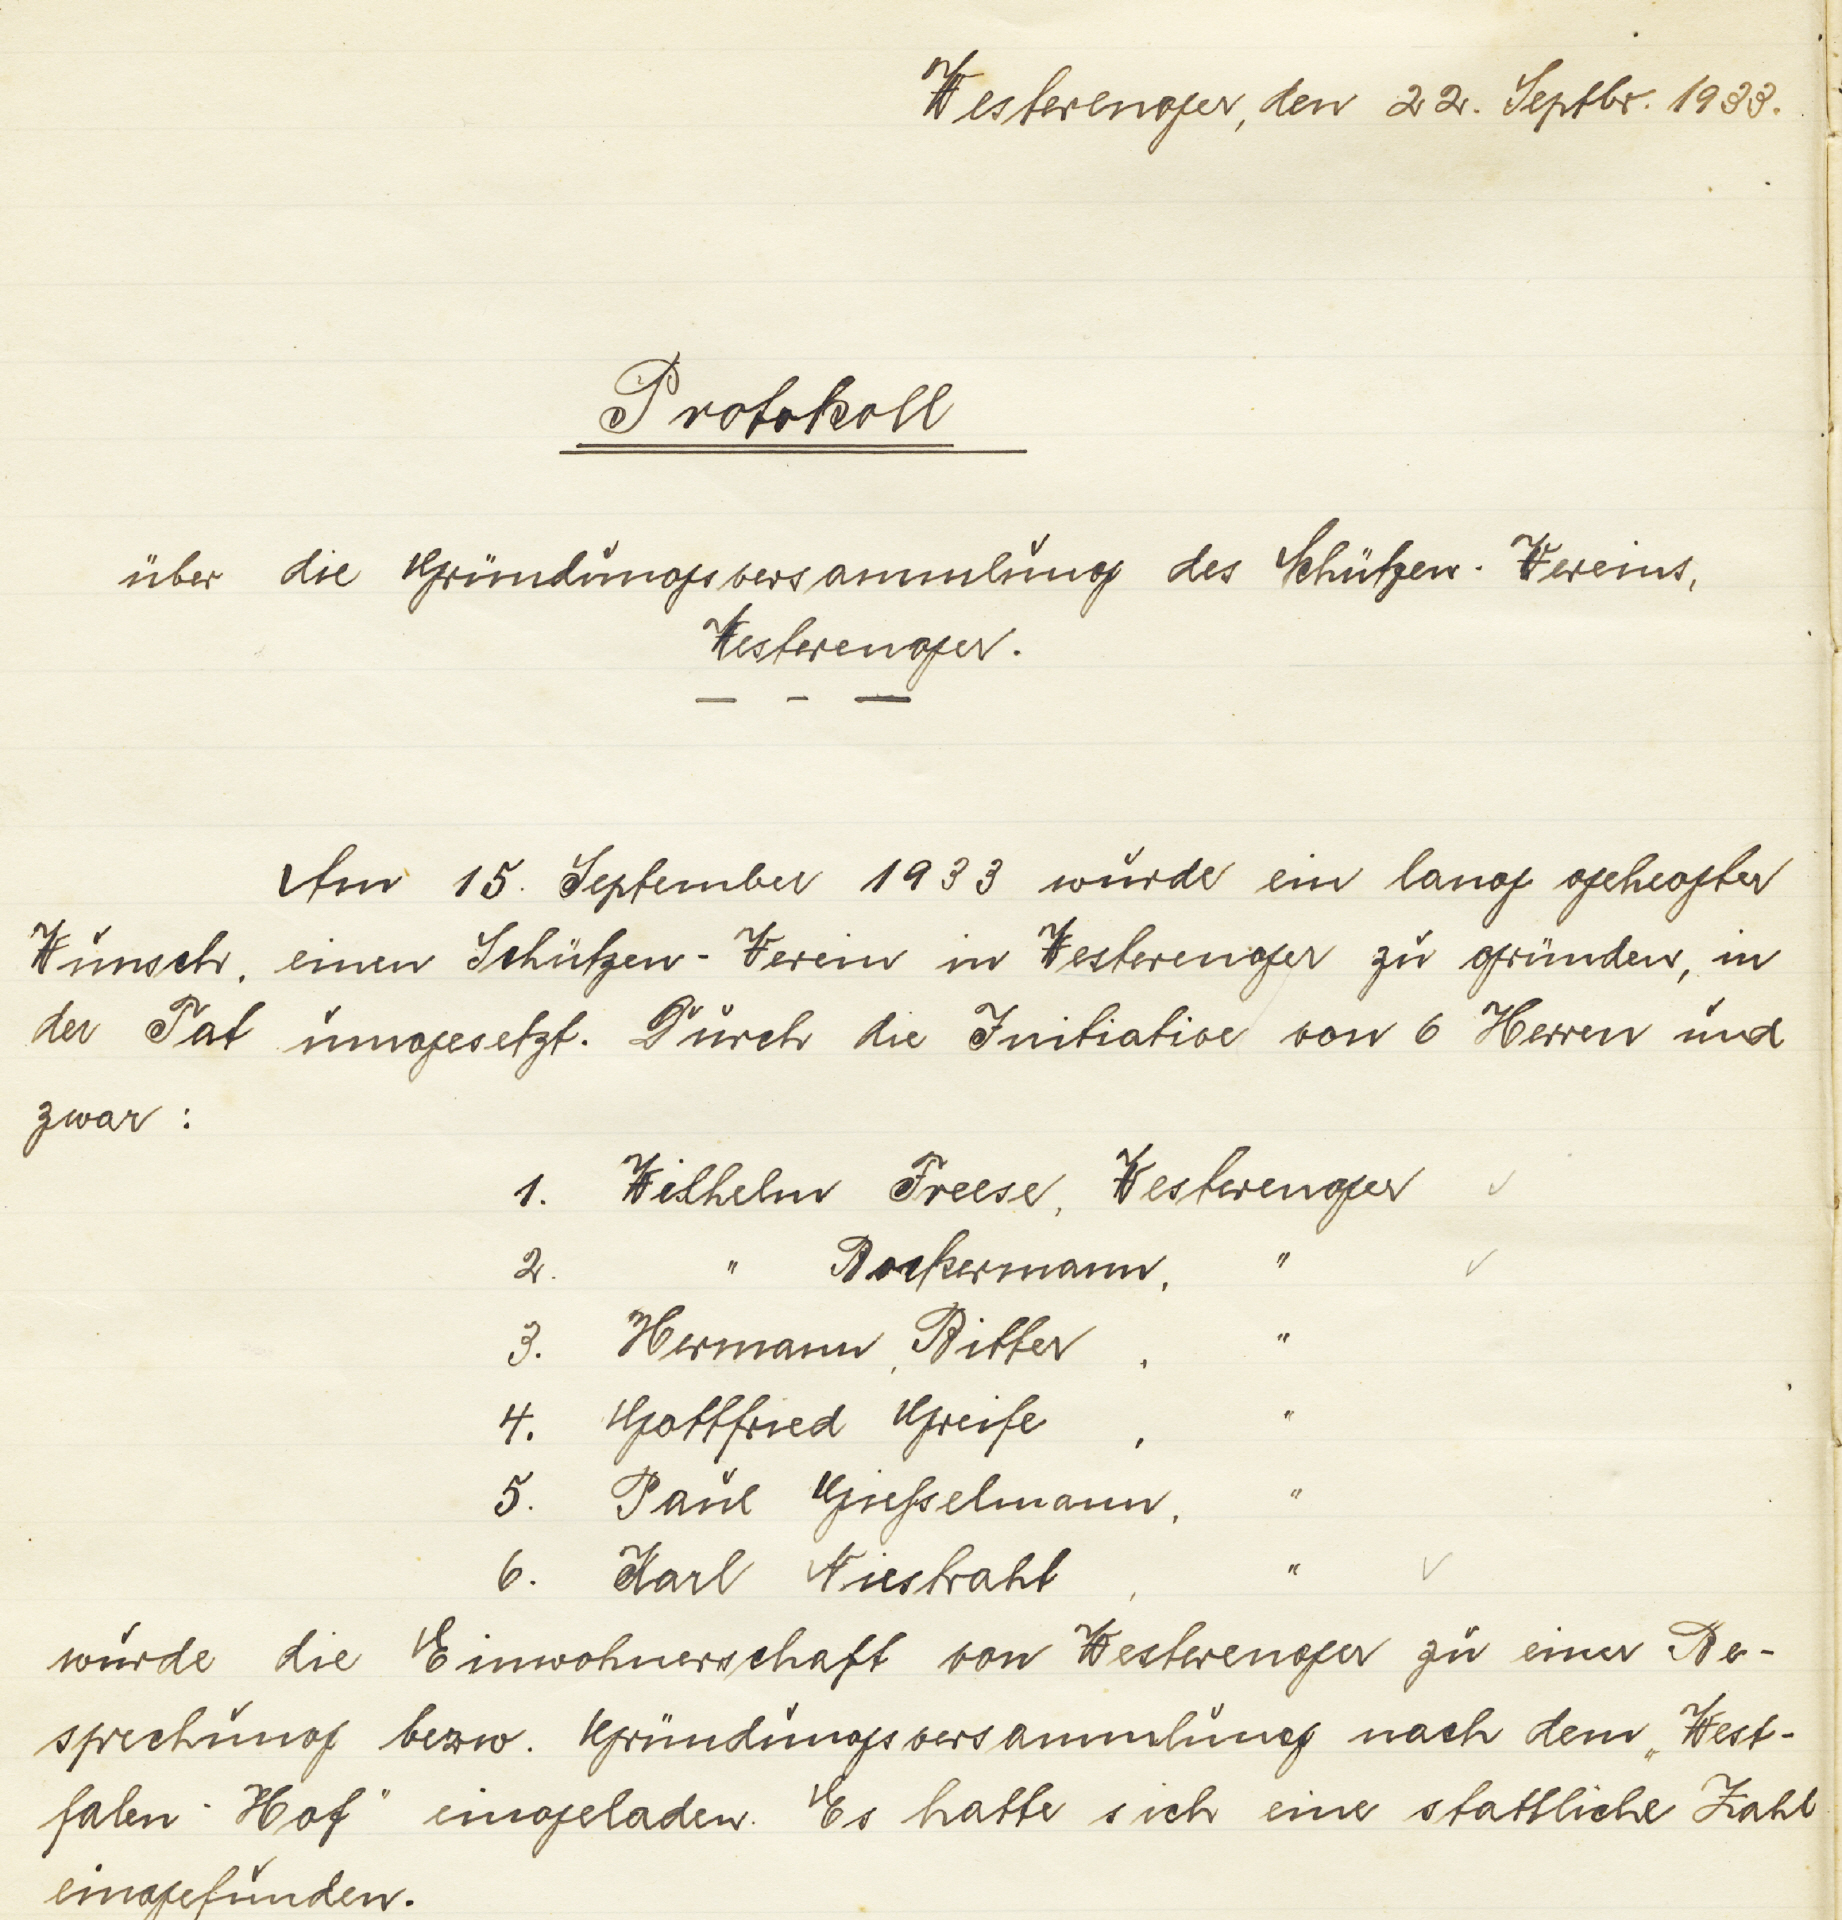 Westerenger, den 22. Septbr. 1933.
Protokoll
über die Gründungsversammlung des Schützen-Vereins,
Westerenger.
Am 15. September 1933 wurde ein lang gehegter
Wunsch, einen Schützen-Verein in Westerenger zu gründen, in
der Tat umgesetzt. Durch die Initiative von 6 Herren und
zwar:
1. Wilhelm Freese, Westerenger
2. " Bockermann, "
3. Hermann Ritter, "
4. Gottfried Greife, "
5. Paul Gießelmann, "
6. Karl Niestrahl, "
wurde die Einwohnerschaft von Westerenger zu einer Be-
sprechung bezw. Gründungsversammlung nach dem „West-
falen-Hof" eingeladen. Es hatte sich eine stattliche Zahl
eingefunden.